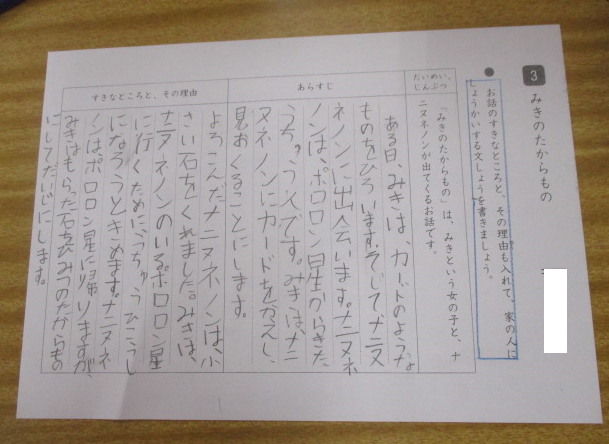 3
みきのたからもの
お話のすきなところと、その理由も入れて、家の人に
しょうかいする文しょうを書きましょう。
だいめい、
じんぶつ
「みきのたからもの」は、みきという女の子と、ナ
ニヌネノンが出てくるお話です。
あらすじ
ある日、みきは、カードのような
ものをひろいます。そしてナニヌ
ネノンに出会います。ナニヌネ
ノンは、ポロロン星からきた、
うちゅう人です。みきは、ナニ
ヌネノンにカードをかえし、
見おくることにします。
すきなところと、その理由
よろこんだナニヌネノンは、小
さい石をくれました。みきは、
ナニヌネノンのいるポロロン星
に行くために、うちゅうひこうし
になろうときめます。ナニヌネ
ノンはポロロン星に帰りますが、
みきはもらった石をひみつのたからもの
にしてだいじにします。